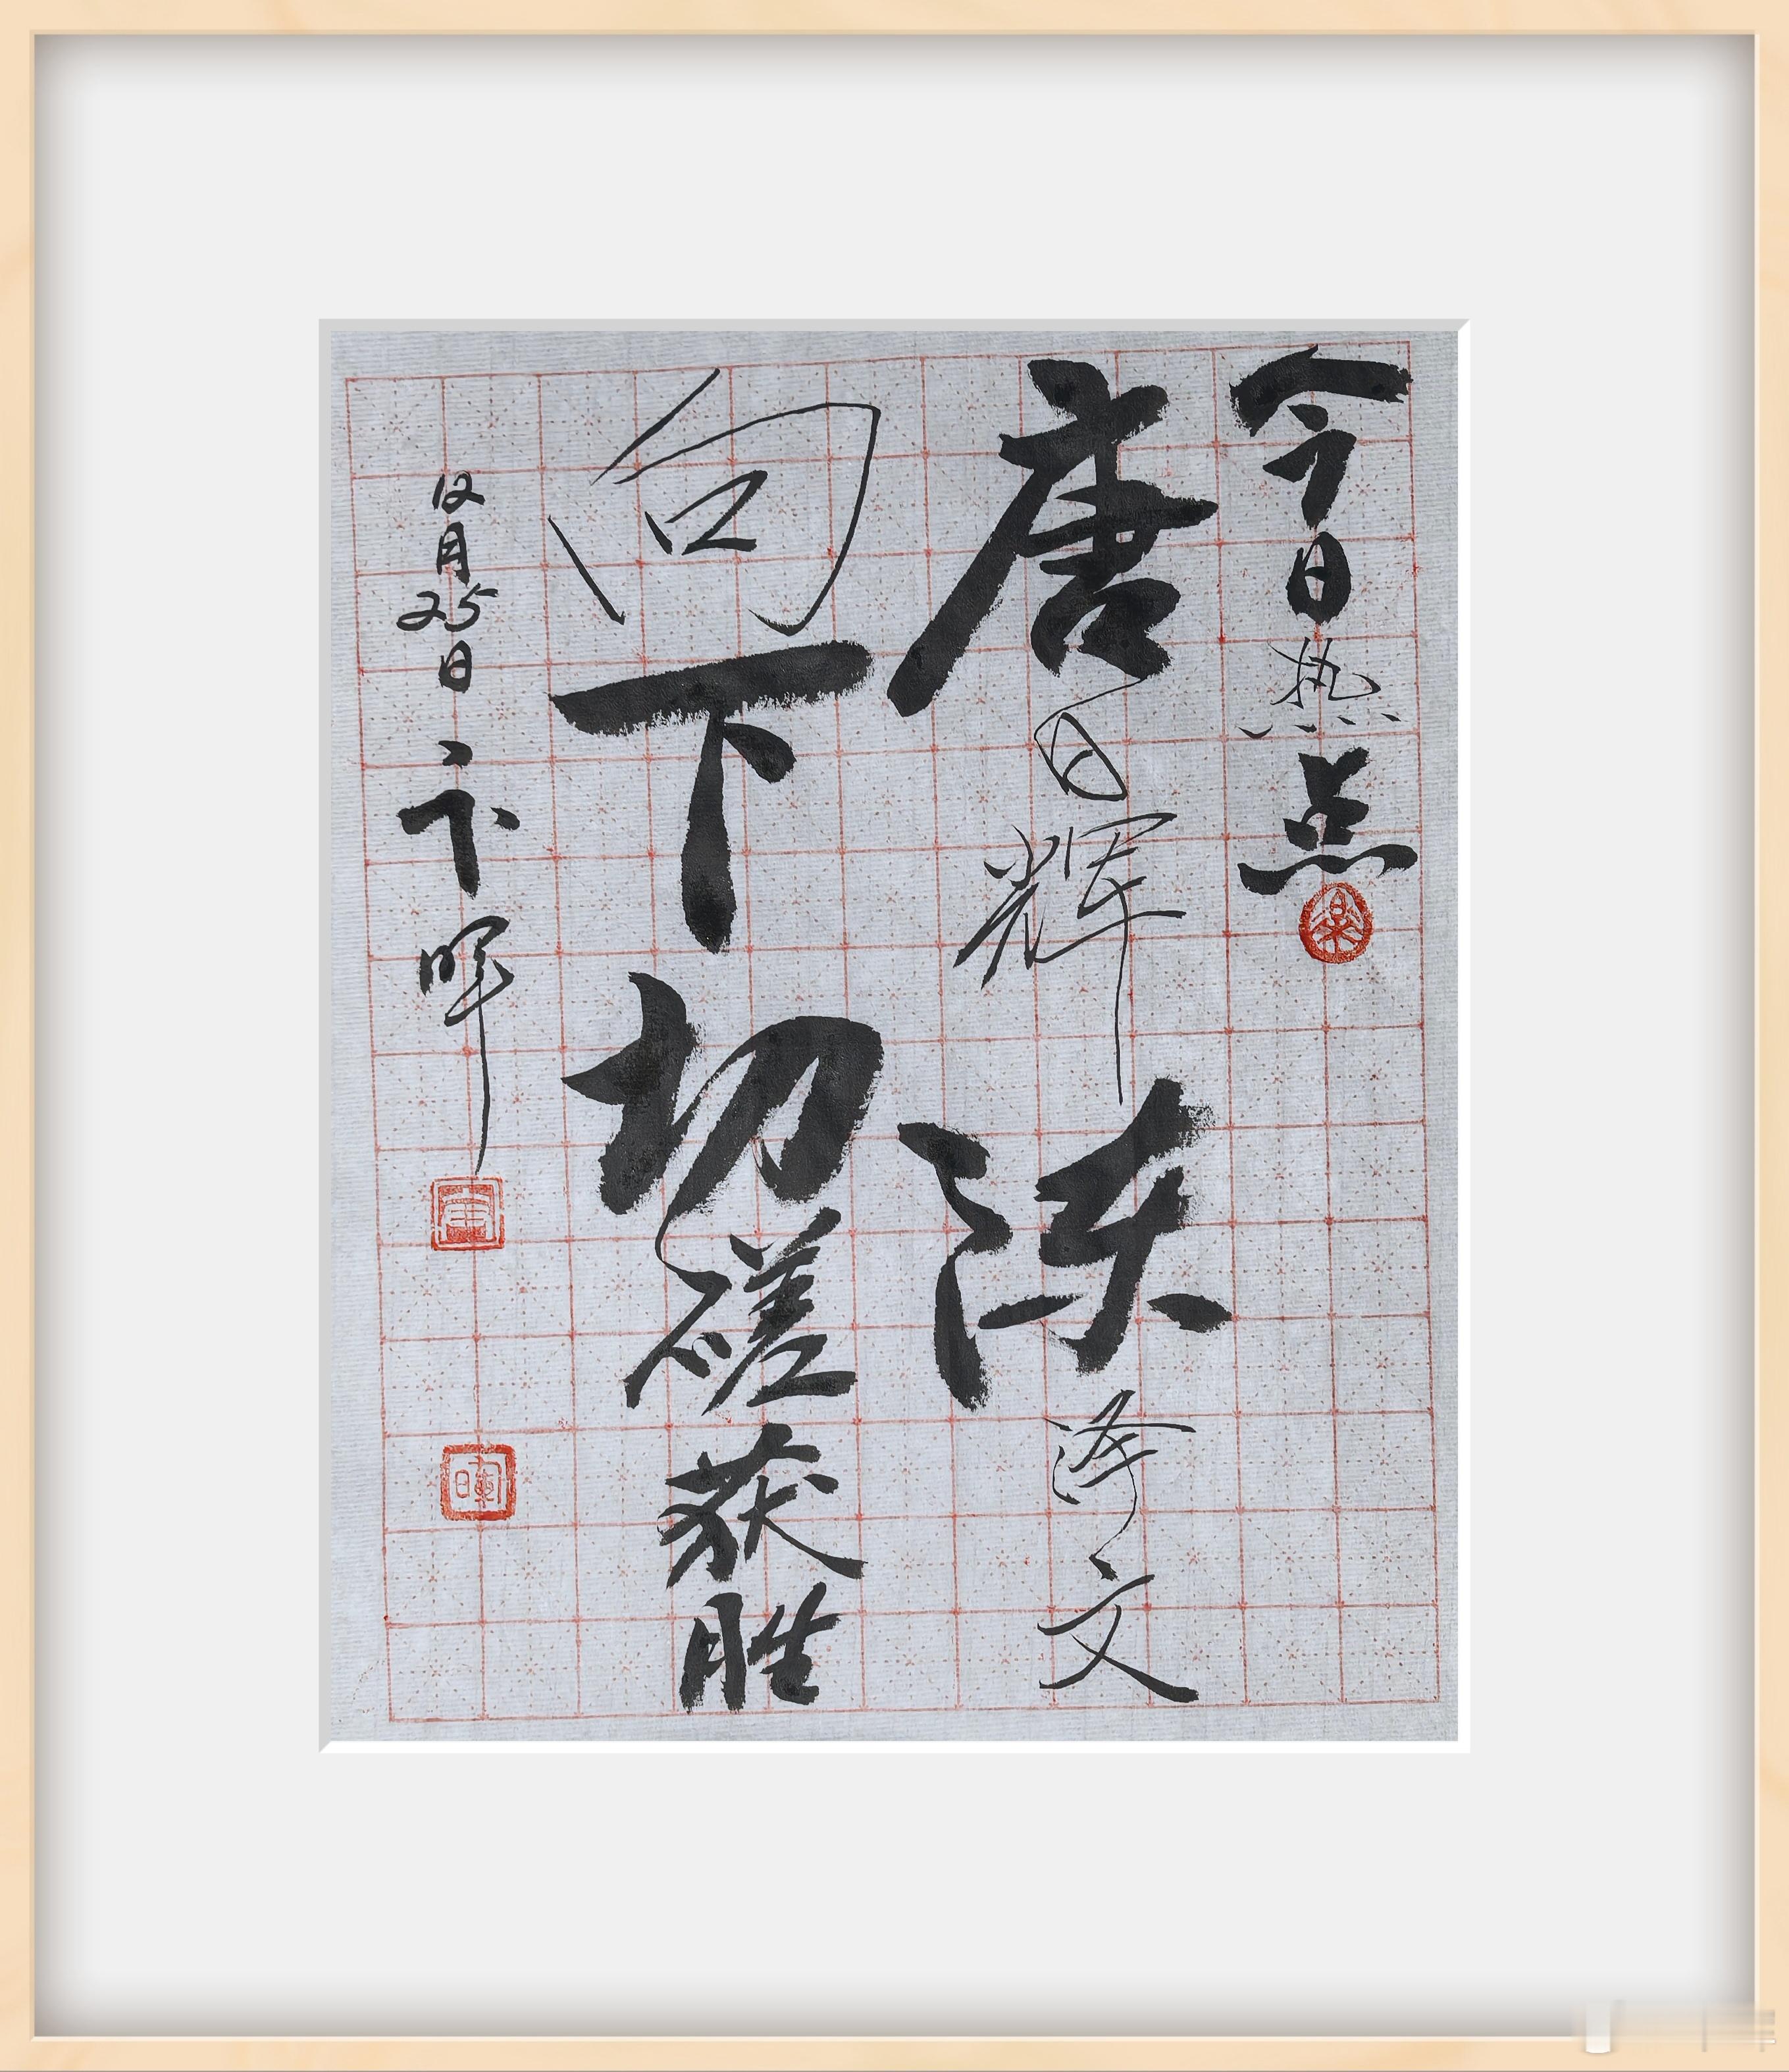 今日热点
唐日辉 洪泽文
向下切磋获胜
12月25日 卞晖